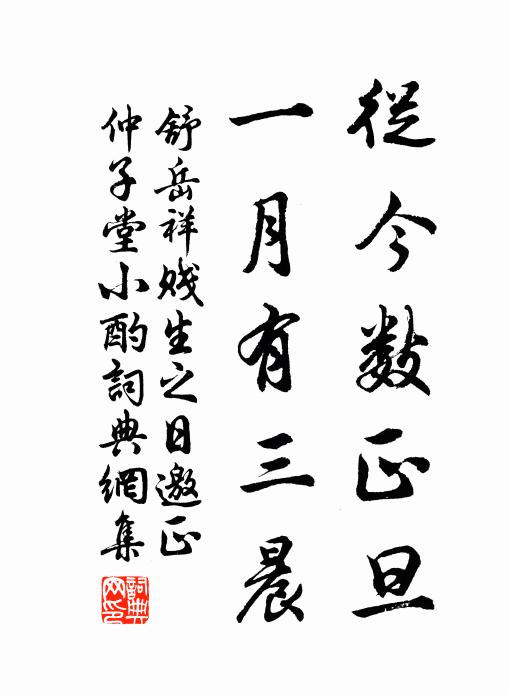 從今數正旦
一月有三晨
舒岳祥賤生之日邀正
仲子堂小酌詞典網集
詞典网印